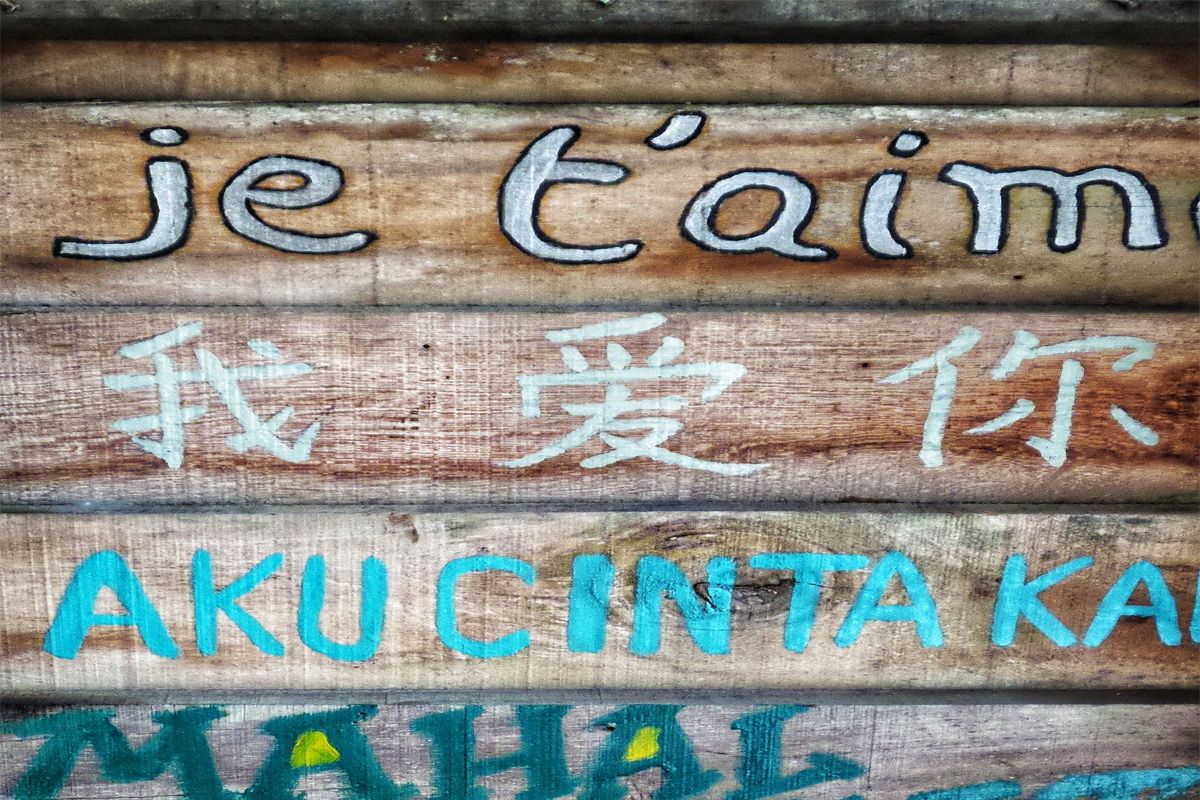 je t'aim
我爱你
AKU CINTA KA
MAHAL